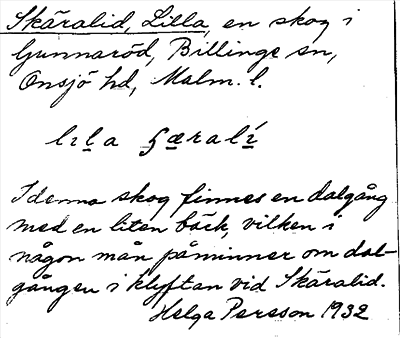 Skäralid, Lilla, en skog i
Gunnaröd, Billinge sn,
Onsjö hd, Malm. l.
I denna skog finnes en dalgång
med en liten bäck, vilken i
någon mån påminner om dal-
gången i klyftan vid Skäralid.
Helga Persson 1932